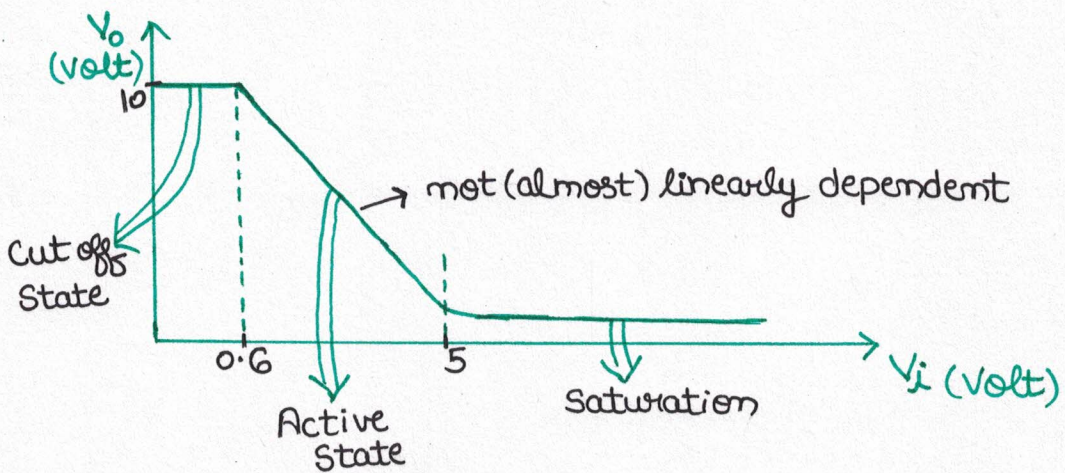 Vo
(volt)
10
not (almost) linearly dependent
Cut off
State
0.6
5
Vi (volt)
Active
State
Saturation